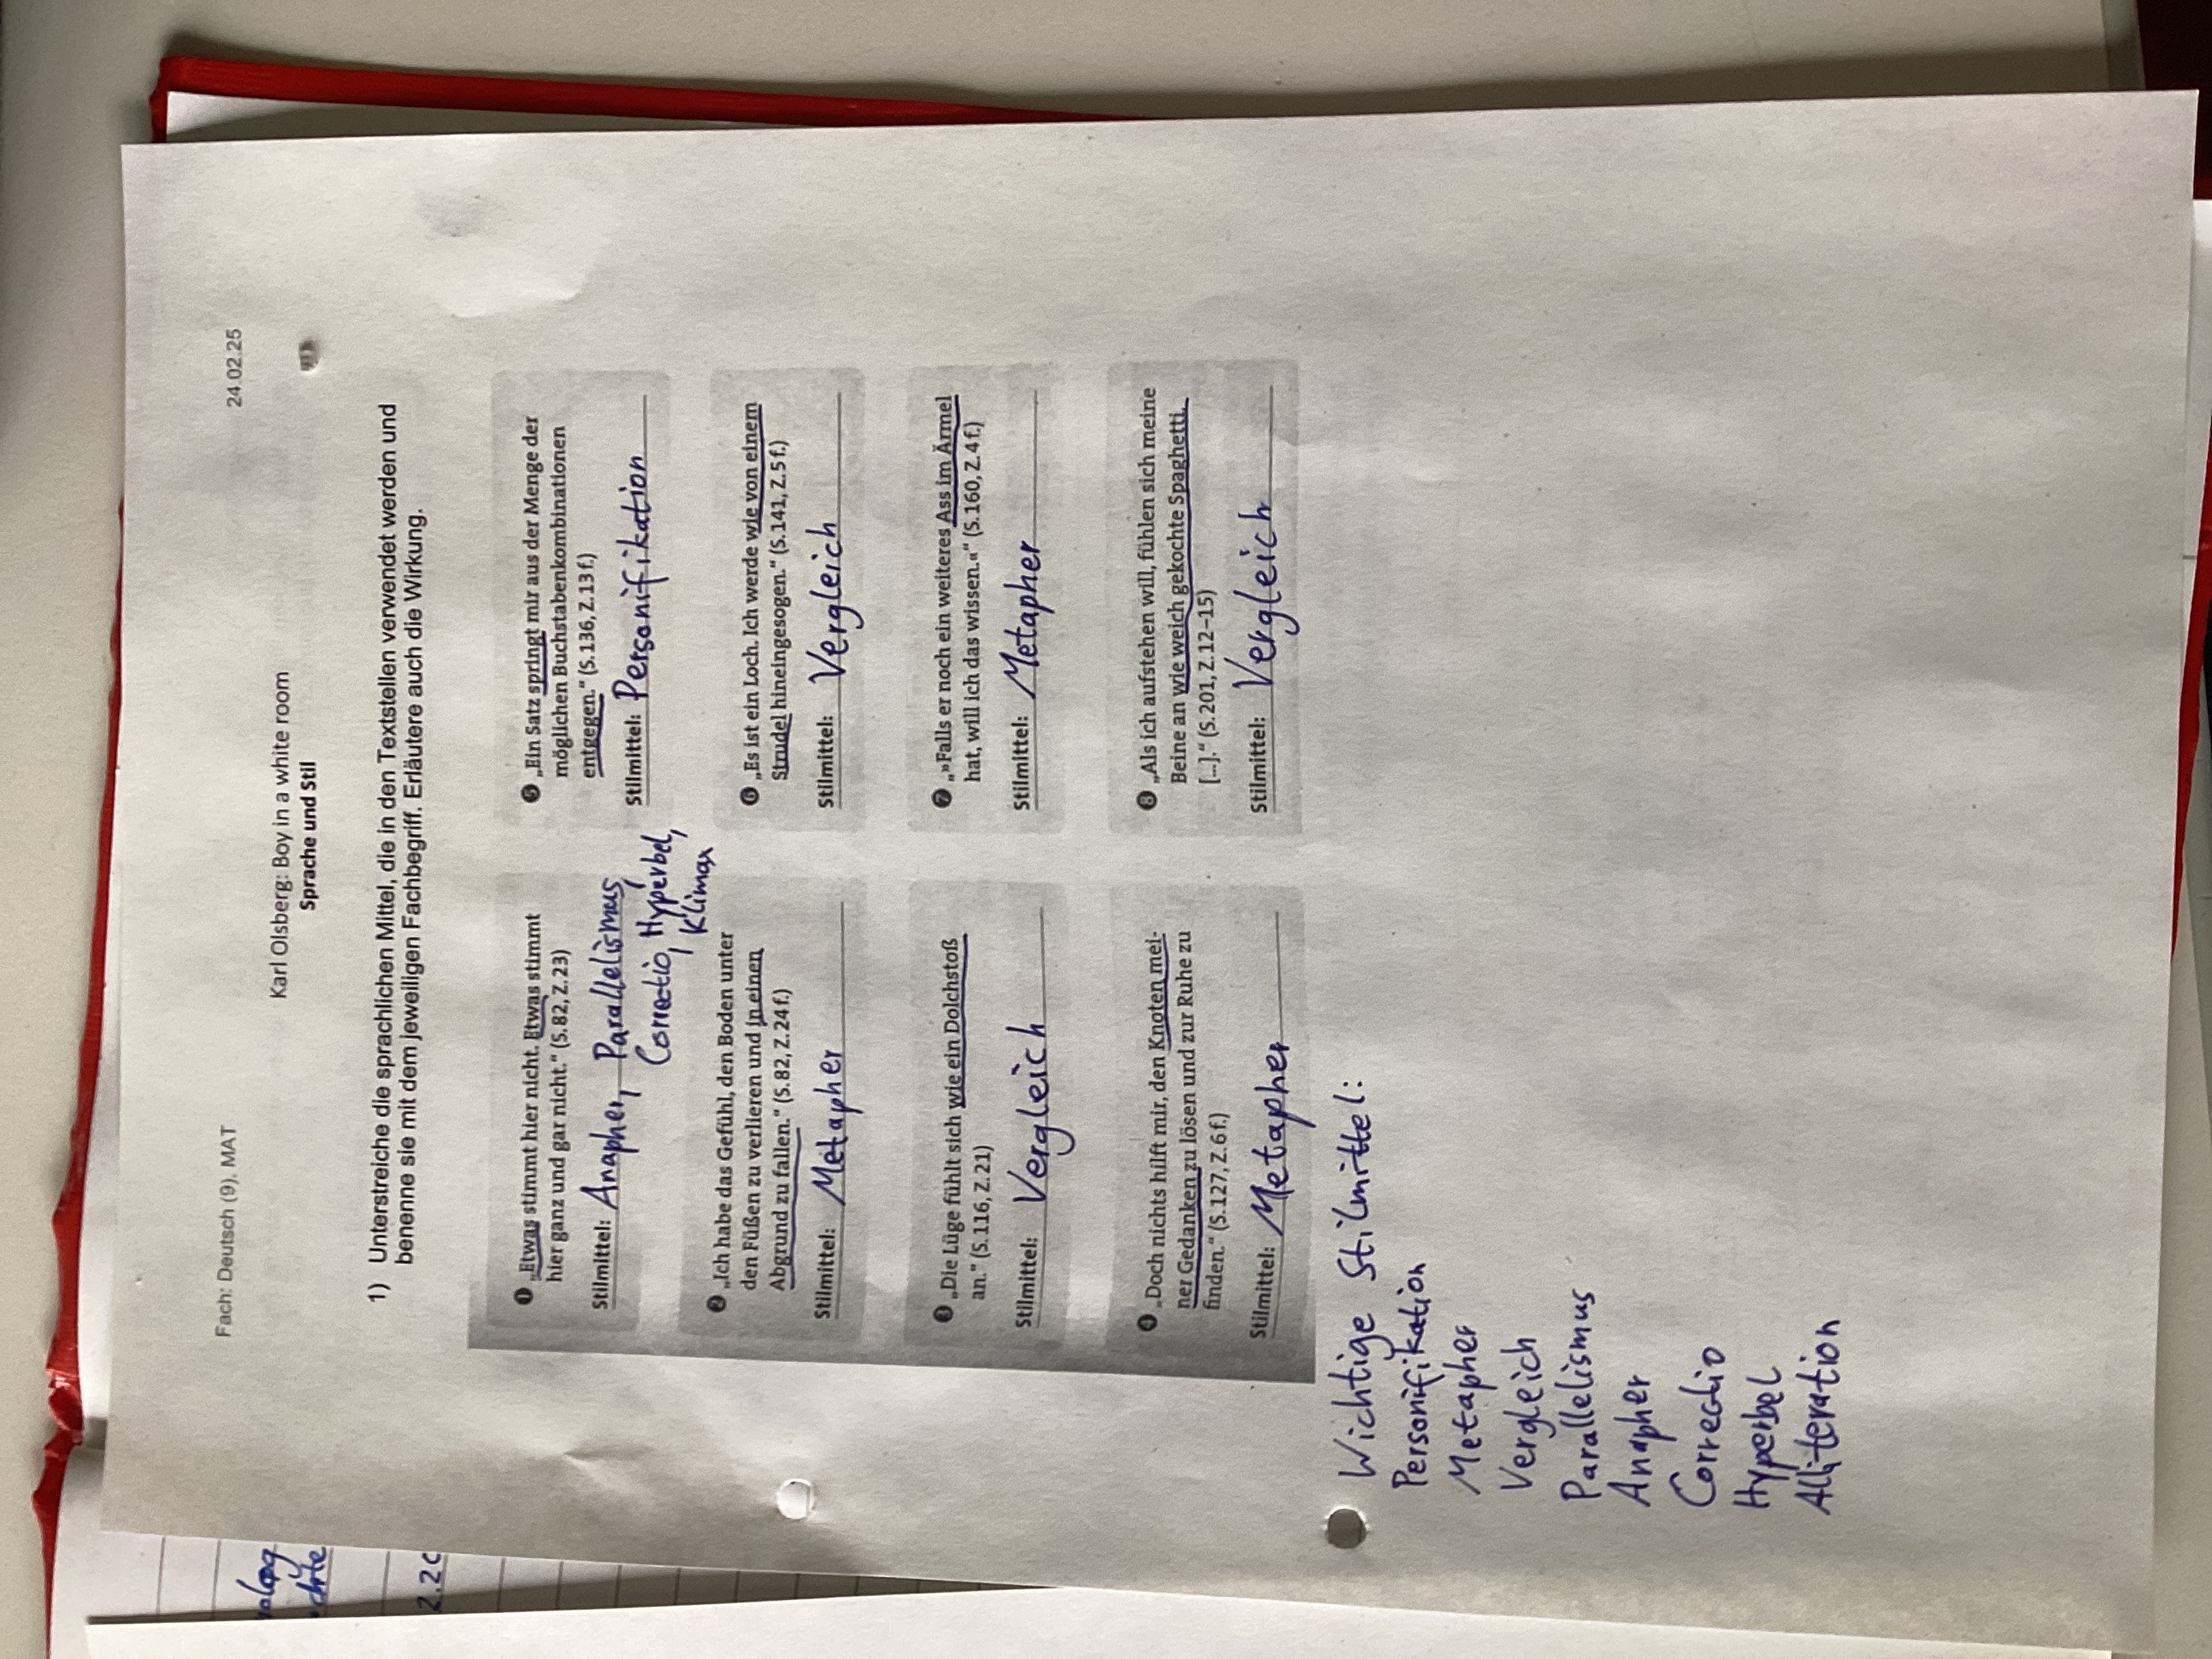 Fach: Deutsch (9), MAT
24.02.25
Karl Olsberg: Boy in a white room
Sprache und Stil
1) Unterstreiche die sprachlichen Mittel, die in den Textstellen verwendet werden und
benenne sie mit dem jeweiligen Fachbegriff. Erläutere auch die Wirkung.
❶ „Etwas stimmt hier nicht. Etwas stimmt
hier ganz und gar nicht.“ (S.82, Z.23)
Stilmittel: Anapher, Parallelismus,
Correctio, Hyperbel,
Klimax
❷ „Ich habe das Gefühl, den Boden unter
den Füßen zu verlieren und in einen
Abgrund zu fallen.“ (S.82, Z.24f.)
Stilmittel: Metapher
❸ „Die Lüge fühlt sich wie ein Dolchstoß
an.“ (S.116, Z.21)
Stilmittel: Vergleich
❹ „Doch nichts hilft mir, den Knoten mei-
ner Gedanken zu lösen und zur Ruhe zu
finden.“ (S.127, Z.6f.)
Stilmittel: Metapher
❺ „Ein Satz springt mir aus der Menge der
möglichen Buchstabenkombinationen
entgegen.“ (S.136, Z.13f.)
Stilmittel: Personifikation
❻ „Es ist ein Loch. Ich werde wie von einem
Strudel hineingesogen.“ (S.141, Z.5f.)
Stilmittel: Vergleich
❼ „»Falls er noch ein weiteres Ass im Ärmel
hat, will ich das wissen.«“ (S.160, Z.4f.)
Stilmittel: Metapher
❽ „Als ich aufstehen will, fühlen sich meine
Beine an wie weich gekochte Spaghetti.
[...].“ (S.201, Z.12–15)
Stilmittel: Vergleich
Wichtige Stilmittel:
Personifikation
Metapher
Vergleich
Parallelismus
Anapher
Correctio
Hyperbel
Alliteration